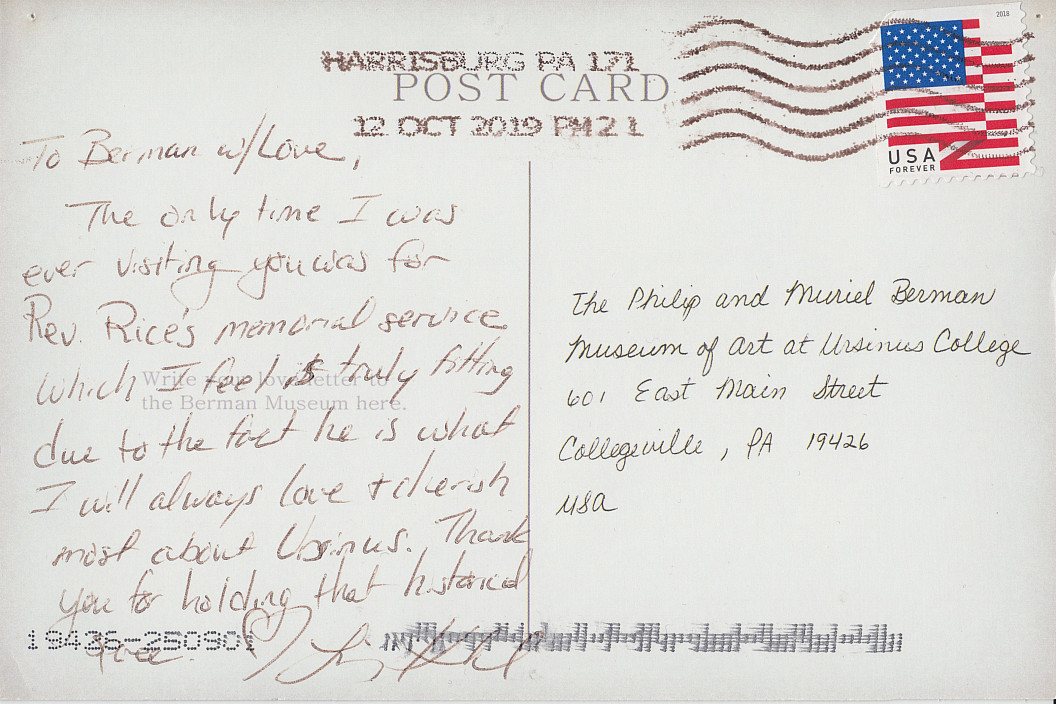 HARRISBURG PA 171
POST CARD
12 OCT 2019 PM 2 L
2018
USA
FOREVER
To Berman w/Love,
The only time I was
ever visiting you was for
Rev. Rice's memorial service
which I feel is truly fitting
Write your love letter to
the Berman Museum here.
due to the fact he is what
I will always love + cherish
most about Ursinus. Thank
you for holding that historical
19436-250901
The Philip and Muriel Berman
Museum of Art at Ursinus College
601 East Main Street
Collegeville, PA 19426
USA